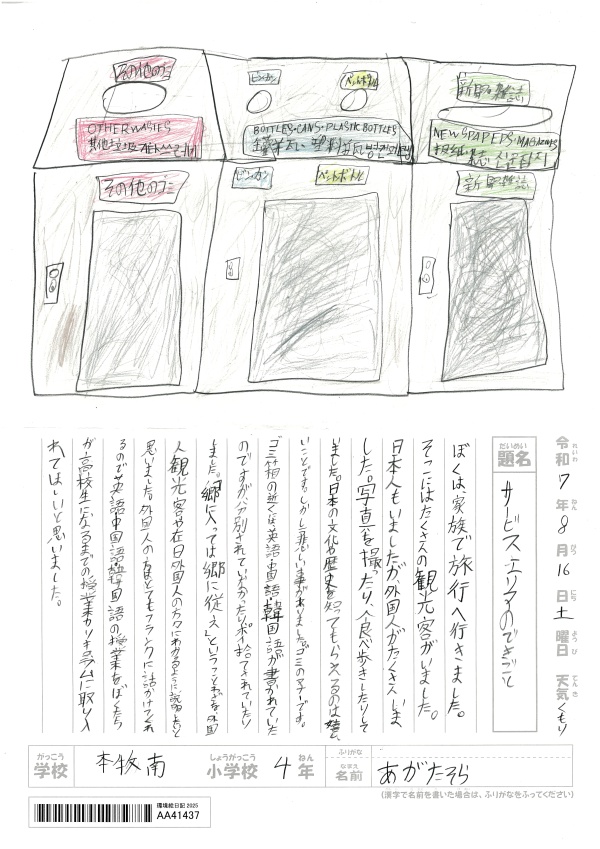 その他のゴミ
OTHER WASTES
其他垃圾
ビン・カン
ペットボトル
BOTTLES・CANS・PLASTIC BOTTLES
新聞・雑誌
NEWSPAPEDS・MAGAZINES
その他のゴミ
ビン・カン
ペットボトル
新聞・雑誌
令和7年8月16日土曜日 天気くもり
れいわ ねん がつ にち ようび てんき
だいめい
題名
サービスエリアのできごと
ぼくは、家族で旅行へ行きました。
そこにはたくさんの観光客がいました。
日本人もいましたが、外国人がたくさんいま
した。写真を撮ったり、食べ歩きしたりして
いました。日本の文化や歴史を知ってもらえるのは嬉し
いことです。しかし悪い事がありました。ゴミのマナーです。
ゴミ箱の近くには英語・中国語・韓国語が書かれていた
のですが、分別されていなかったりポイ捨てされていたり
しました。「郷に入っては郷に従え」ということわざを外国
人観光客や在日外国人の方々にわかるように説明したいと
思いました。外国人の方はとてもフランクに話かけてくれ
るので英語・中国語・韓国語の授業をぼくたち
が高校生になるまでの授業カリキュラムに取り入
れてほしいと思いました。
がっこう
学校
本牧南
しょうがっこう
小学校
4
ねん
年
ふりがな
なまえ
名前
あがたそら
(漢字で名前を書いた場合は、ふりがなをふってください)
環境絵日記 2025
AA41437